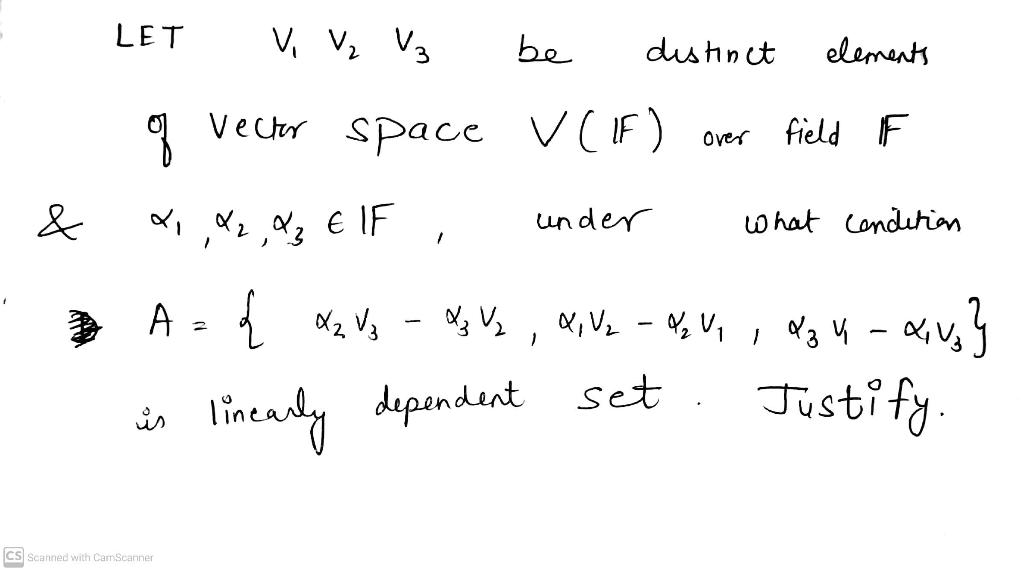 LET V₁ V₂ V₃ be distinct elements
of Vector space V(𝔽) over field 𝔽
& α₁, α₂, α₃ ∈ 𝔽, under what condition
A = { α₂V₃ - α₃V₂, α₁V₂ - α₂V₁, α₃V₁ - α₁V₃}
is linearly dependent set. Justify.
CS Scanned with CamScanner